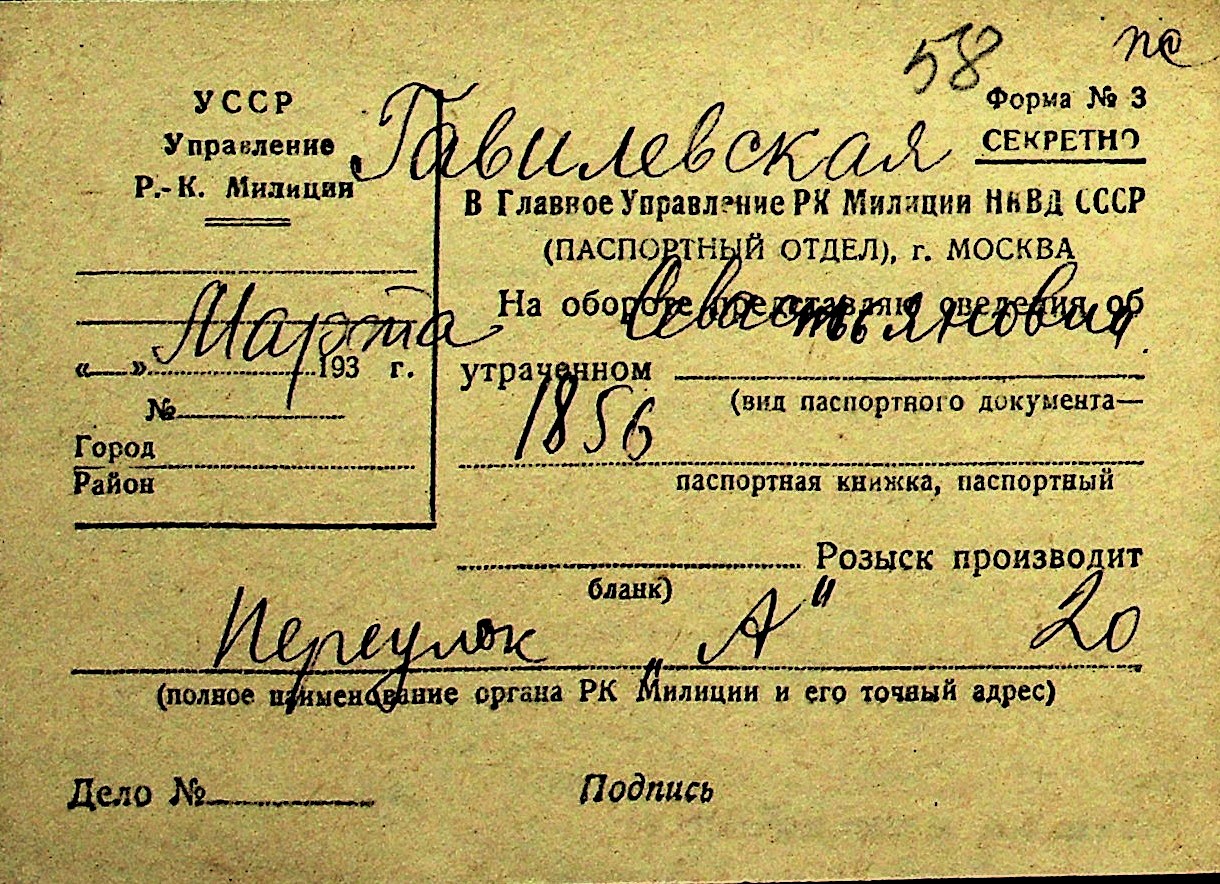 58 ПС
УССР
Управление
Р.-К. Милиции
«__» 193 г.
№
Город
Район
Форма № 3
СЕКРЕТНО
Гавилевская
В Главное Управление РК Милиции НКВД СССР
(ПАСПОРТНЫЙ ОТДЕЛ), г. МОСКВА
На обороте представляю сведения об
Марта Севастьянович
утраченном
(вид паспортного документа—
1856
паспортная книжка, паспортный
Розыск производит
бланк)
Переулок „А“ 20
(полное наименование органа РК Милиции и его точный адрес)
Дело № Подпись